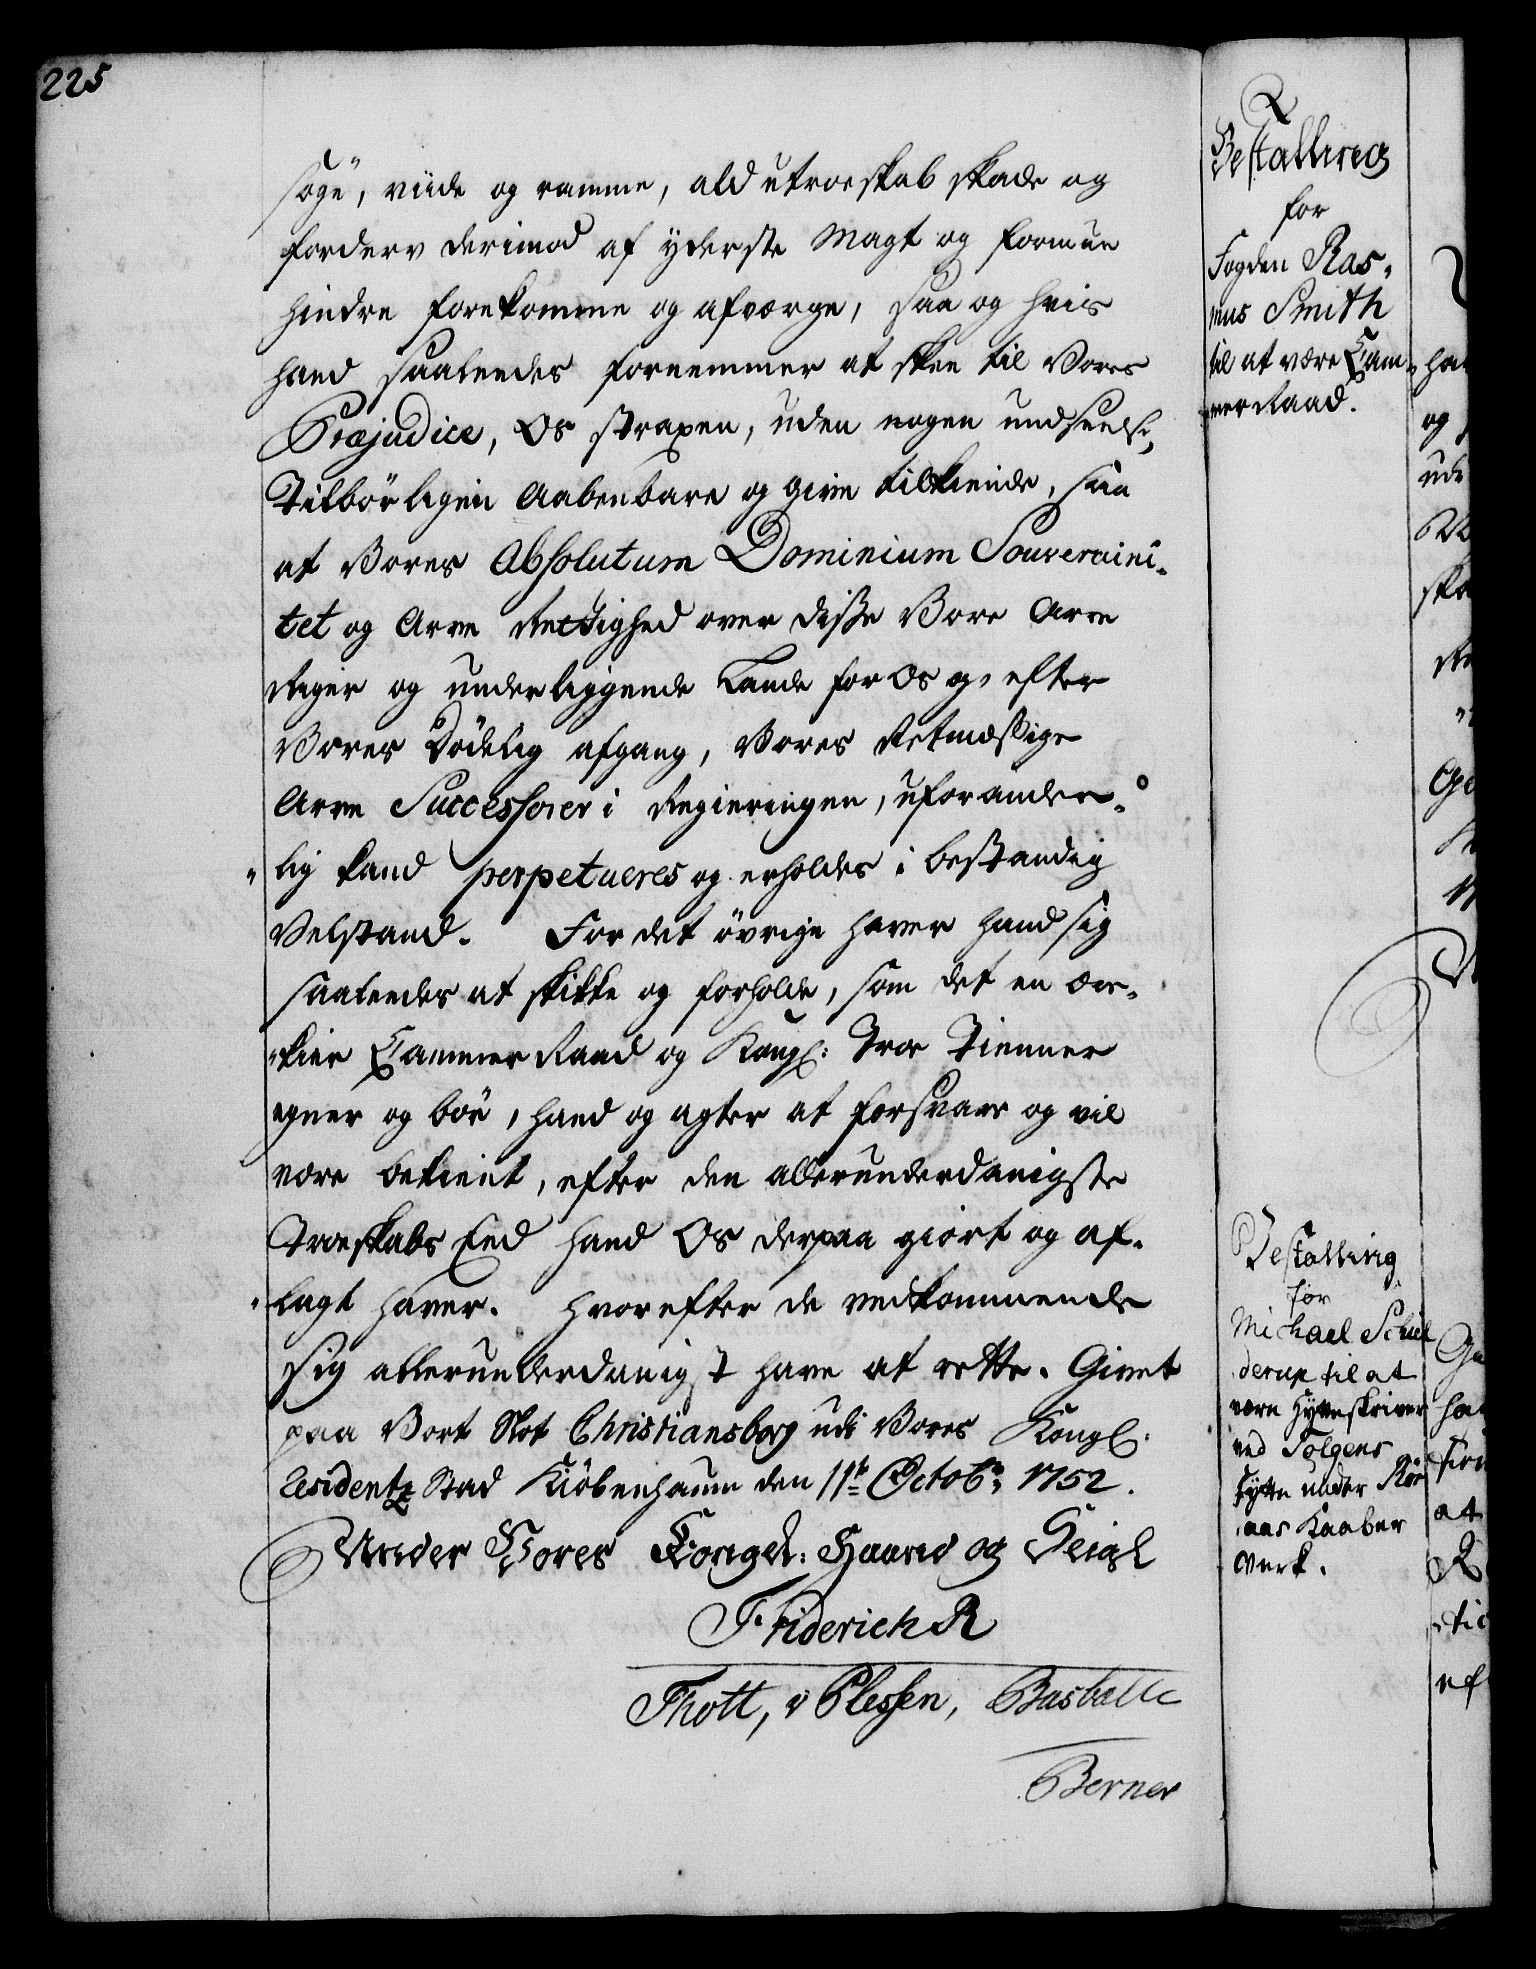 225
søge, viide og ramme, ald utroeskab skade og
forderv derimod af yderste Magt og formue
hindre forekomme og afværge, saa og hvis
hand saaleedes fornemmer at skee til Vores
Præjudice, Os straxen, uden nogen undseelse,
Tilbørligen Aabenbare og give tilkiende, saa
at Vores Absolutum Dominium Souveraini-
tet og Arve Rettighed over diße Vore Arve
Riger og underliggende Lande for Os og efter
Vores Dødelig afgang, Vores Retmæssige
Arve Successorer i Regieringen, uforander-
„lig kand perpetueres og erholdes i bestandig
Velstand. For det øvrige haver hand sig
saaleedes at skikke og forholde, som det en ær-
„kiær Cammer Raad og Kongl: Troe Tienner
egner og bør, hand og agter at forsvare og vil
være bekient, efter den allerunderdanigste
Troeskabs Eed hand Os derpaa giort og af-
„lagt haver. Hvorefter de vedkommende
sig allerunderdanigst have at rette. Givet
paa Vort Slot Christiansborg udi Vores Kongl:
Residentz Stad Kiöbenhaun den 11te Octobr: 1752.
Under Vores Kongel: Haand og Seigl
Friderich R
Thott, v Plessen, Basballe
Berner
Bestalling
for
Fogden Ras-
mus Smith
til at være Cam-
mer Raad.
Bestalling
for
Michael Schiel
derup til at
være Hytteskriver
ved Tolgens
Hytte under Rør
aas Kaaber
Værk.